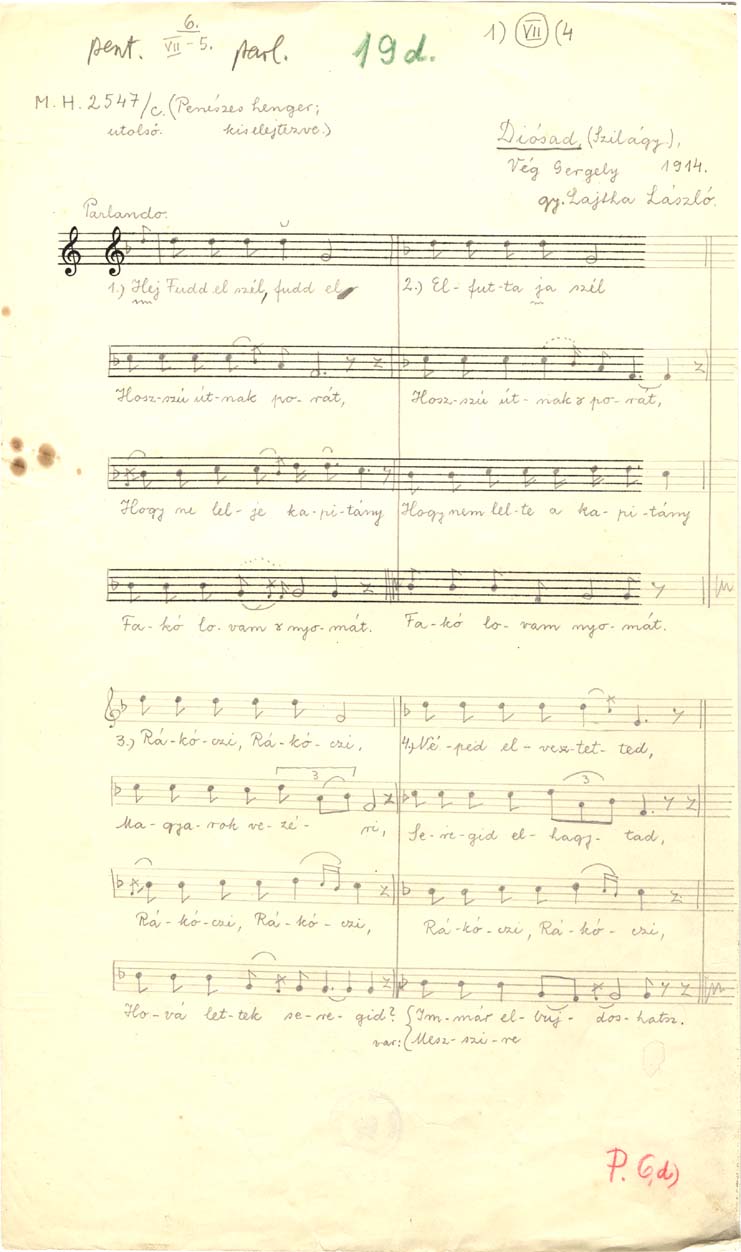 6.
pent. VII-5. parl. 19d. 1) VII (4
M.H. 2547/c. (Penészes henger;
utolsó. kiselejtezve.)
Diósad, (Szilágy),
Vég Gergely 1914.
gy. Lajtha László.
Parlando.
1.) Hej Fudd el szél, fudd el 2.) El-fut-ta ja szél
Hosz-szú út-nak po-rát, Hosz-szú út-nak po-rát,
Hogy ne lel-je ka-pi-tány Hogy nem lel-te a ka-pi-tány
Fa-kó lo-vam nyo-mát. Fa-kó lo-vam nyo-mát.
3.) Rá-kó-czi, Rá-kó-czi, 4.) Né-ped el-vesz-tet-ted,
3 3
Ma-gya-rok ve-zé-ri, Se-re-gid el-hagy-tad,
Rá-kó-czi, Rá-kó-czi, Rá-kó-czi, Rá-kó-czi,
Ho-vá let-tek se-re-gid? Im-már el-buj-dos-hatsz.
var: Mesz-szi-re
P. 6,d)